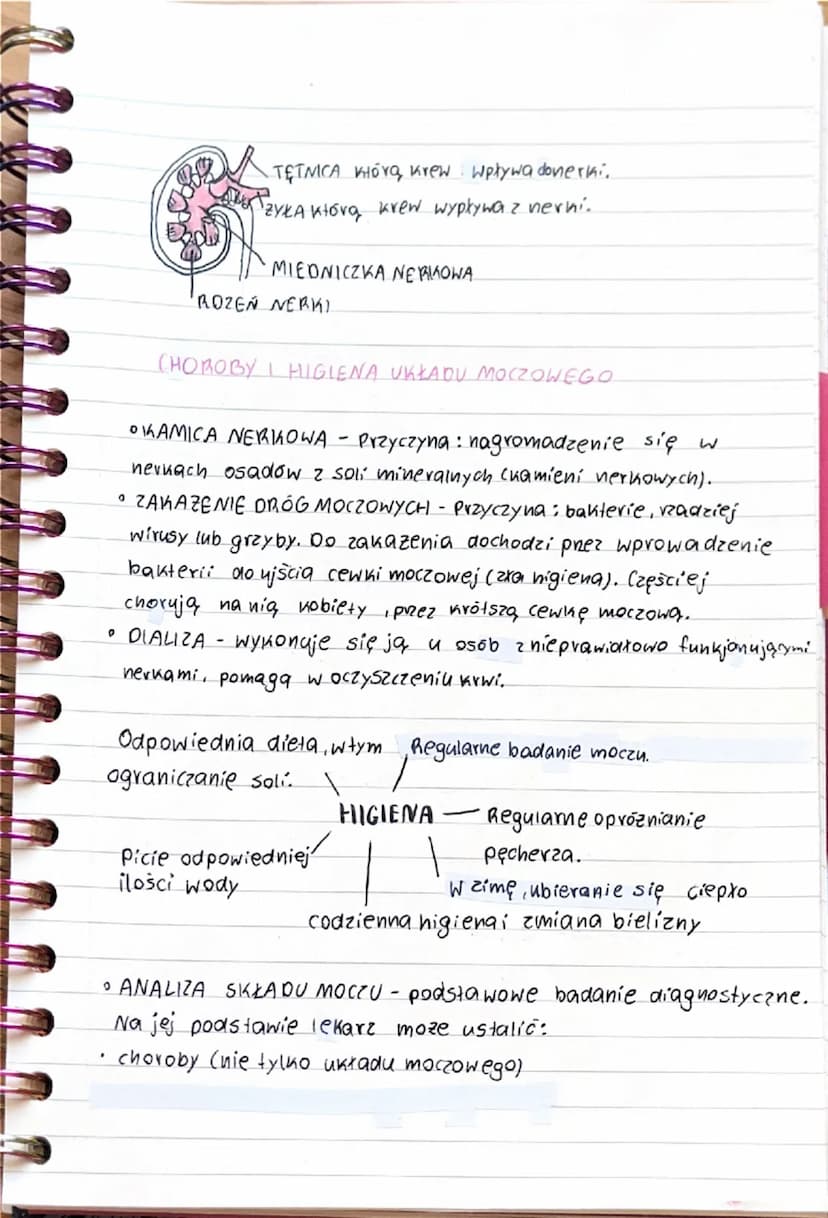 TĘTNICA którą krew wpływa do nerki.
ŻYŁA którą krew wypływa z nerki.
MIEDNICZKA NERKOWA
RDZEŃ NERKI
CHOROBY I HIGIENA UKŁADU MOCZOWEGO
• KAMICA NERKOWA - Przyczyna: nagromadzenie się w
nerkach osadów z soli mineralnych (kamieni nerkowych).
• ZAKAŻENIE DRÓG MOCZOWYCH - Przyczyna: bakterie, rzadziej
wirusy lub grzyby. Do zakażenia dochodzi przez wprowadzenie
bakterii do ujścia cewki moczowej (zła higiena). Częściej
chorują na nią kobiety, przez krótszą cewkę moczową.
• DIALIZA - wykonuje się ją u osób z nieprawiałowo funkjonującymi
nerkami, pomaga w oczyszczeniu krwi.
Odpowiednia dieta, w tym
ograniczanie soli.
Regularne badanie moczu.
HIGIENA
Regularne opróżnianie
pęcherza.
Picie odpowiedniej
ilości wody
W zimę, ubieranie się ciepło
codzienna higiena i zmiana bielizny
• ANALIZA SKŁADU MOCZU - podstawowe badanie diagnostyczne.
Na jej podstawie lekarz może ustalić:
• choroby (nie tylko układu moczowego)